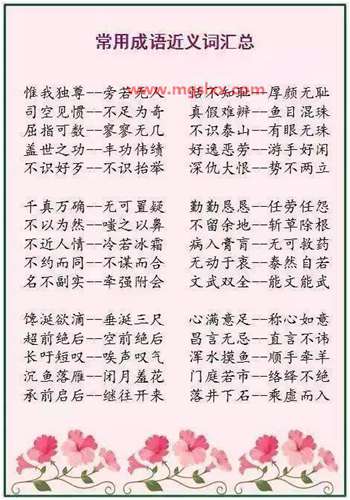 常用成语近义词汇总
www.mgsho.com
惟我独尊--旁若无人
司空见惯--不足为奇
屈指可数--寥寥无几
盖世之功--丰功伟绩
不识好歹--不识抬举
千真万确--无可置疑
不以为然--嗤之以鼻
不近人情--冷若冰霜
不约而同--不谋而合
名不副实--牵强附会
馋涎欲滴--垂涎三尺
超前绝后--空前绝后
长吁短叹--唉声叹气
沉鱼落雁--闭月羞花
承前启后--继往开来
恬不知耻--厚颜无耻
真假难辨--鱼目混珠
不识泰山--有眼无珠
好逸恶劳--游手好闲
深仇大恨--势不两立
勤勤恳恳--任劳任怨
不留余地--斩草除根
病入膏肓--无可救药
无动于衷--泰然自若
文武双全--能文能武
心满意足--称心如意
昌言无忌--直言不讳
浑水摸鱼--顺手牵羊
门庭若市--络绎不绝
落井下石--乘虚而入